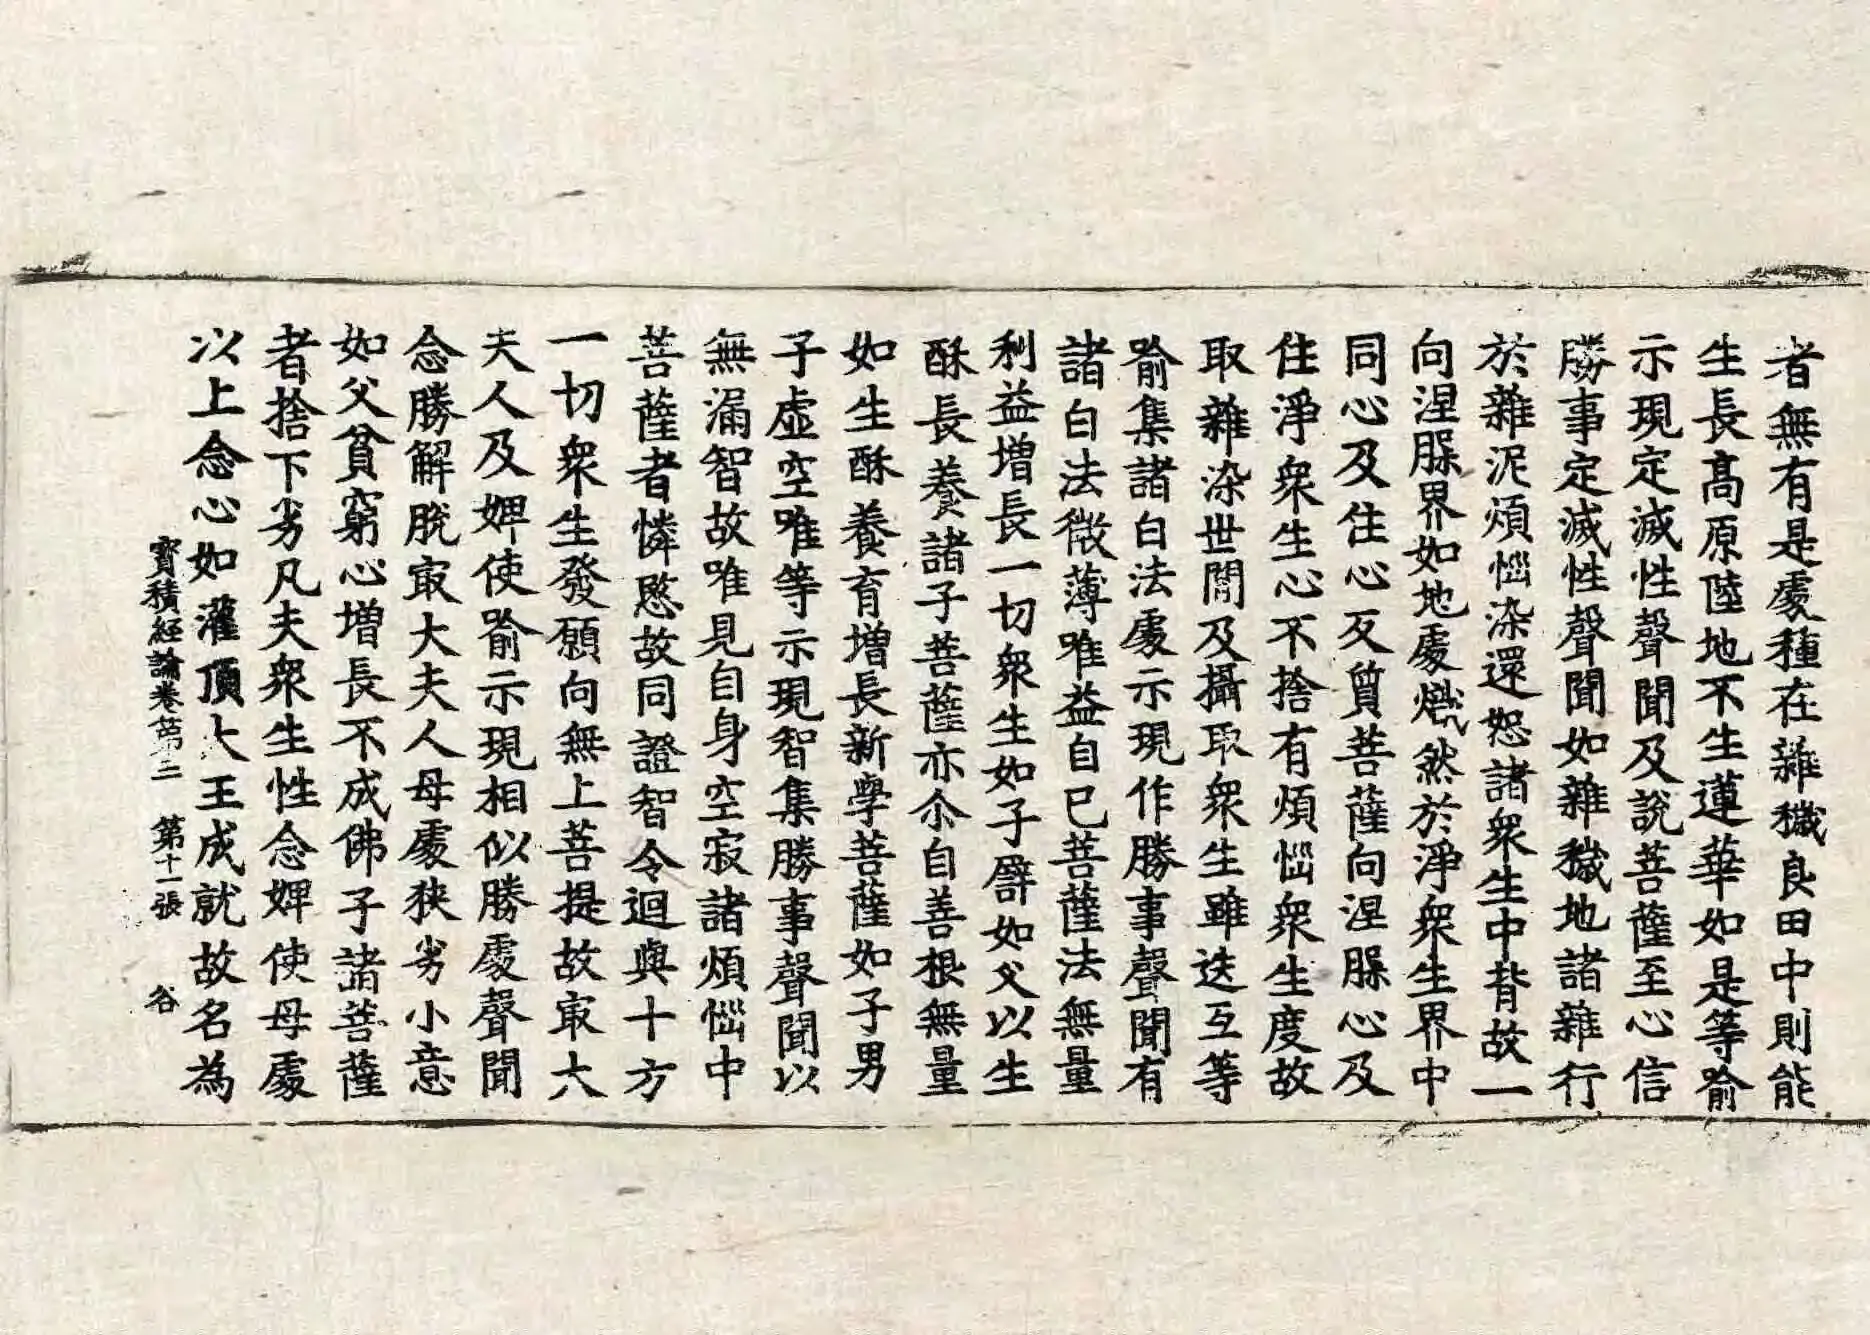 者無有是處種在雜穢良田中則能
生長高原陸地不生蓮華如是等喻
示現定滅性聲聞及說菩薩至心信
勝事定滅性聲聞如雜穢地諸雜行
於雜泥煩惱染還恕諸衆生中背故一
向涅槃界如地處熾然於淨衆生界中
同心及住心及質菩薩向涅槃心及
住淨衆生心不捨有煩惱衆生度故
取雜染世間及攝取衆生雖迭互等
喻集諸白法處示現作勝事聲聞有
諸白法微薄唯益自己菩薩法無量
利益增長一切衆生如子譬如父以生
酥長養諸子菩薩亦尒自善根無量
如生酥養育增長新學菩薩如子男
子虛空唯等示現智集勝事聲聞以
無漏智故唯見自身空寂諸煩惱中
菩薩者憐愍故同證智令迴與十方
一切衆生發願向無上菩提故㝡大
夫人及婢使喻示現相似勝處聲聞
念勝解脫㝡大夫人母處狹劣小意
如父貧窮心增長不成佛子諸菩薩
者捨下劣凡夫衆生性念婢使母處
以上念心如灌頂大王成就故名為
寶積經論卷第二 第十一張 谷